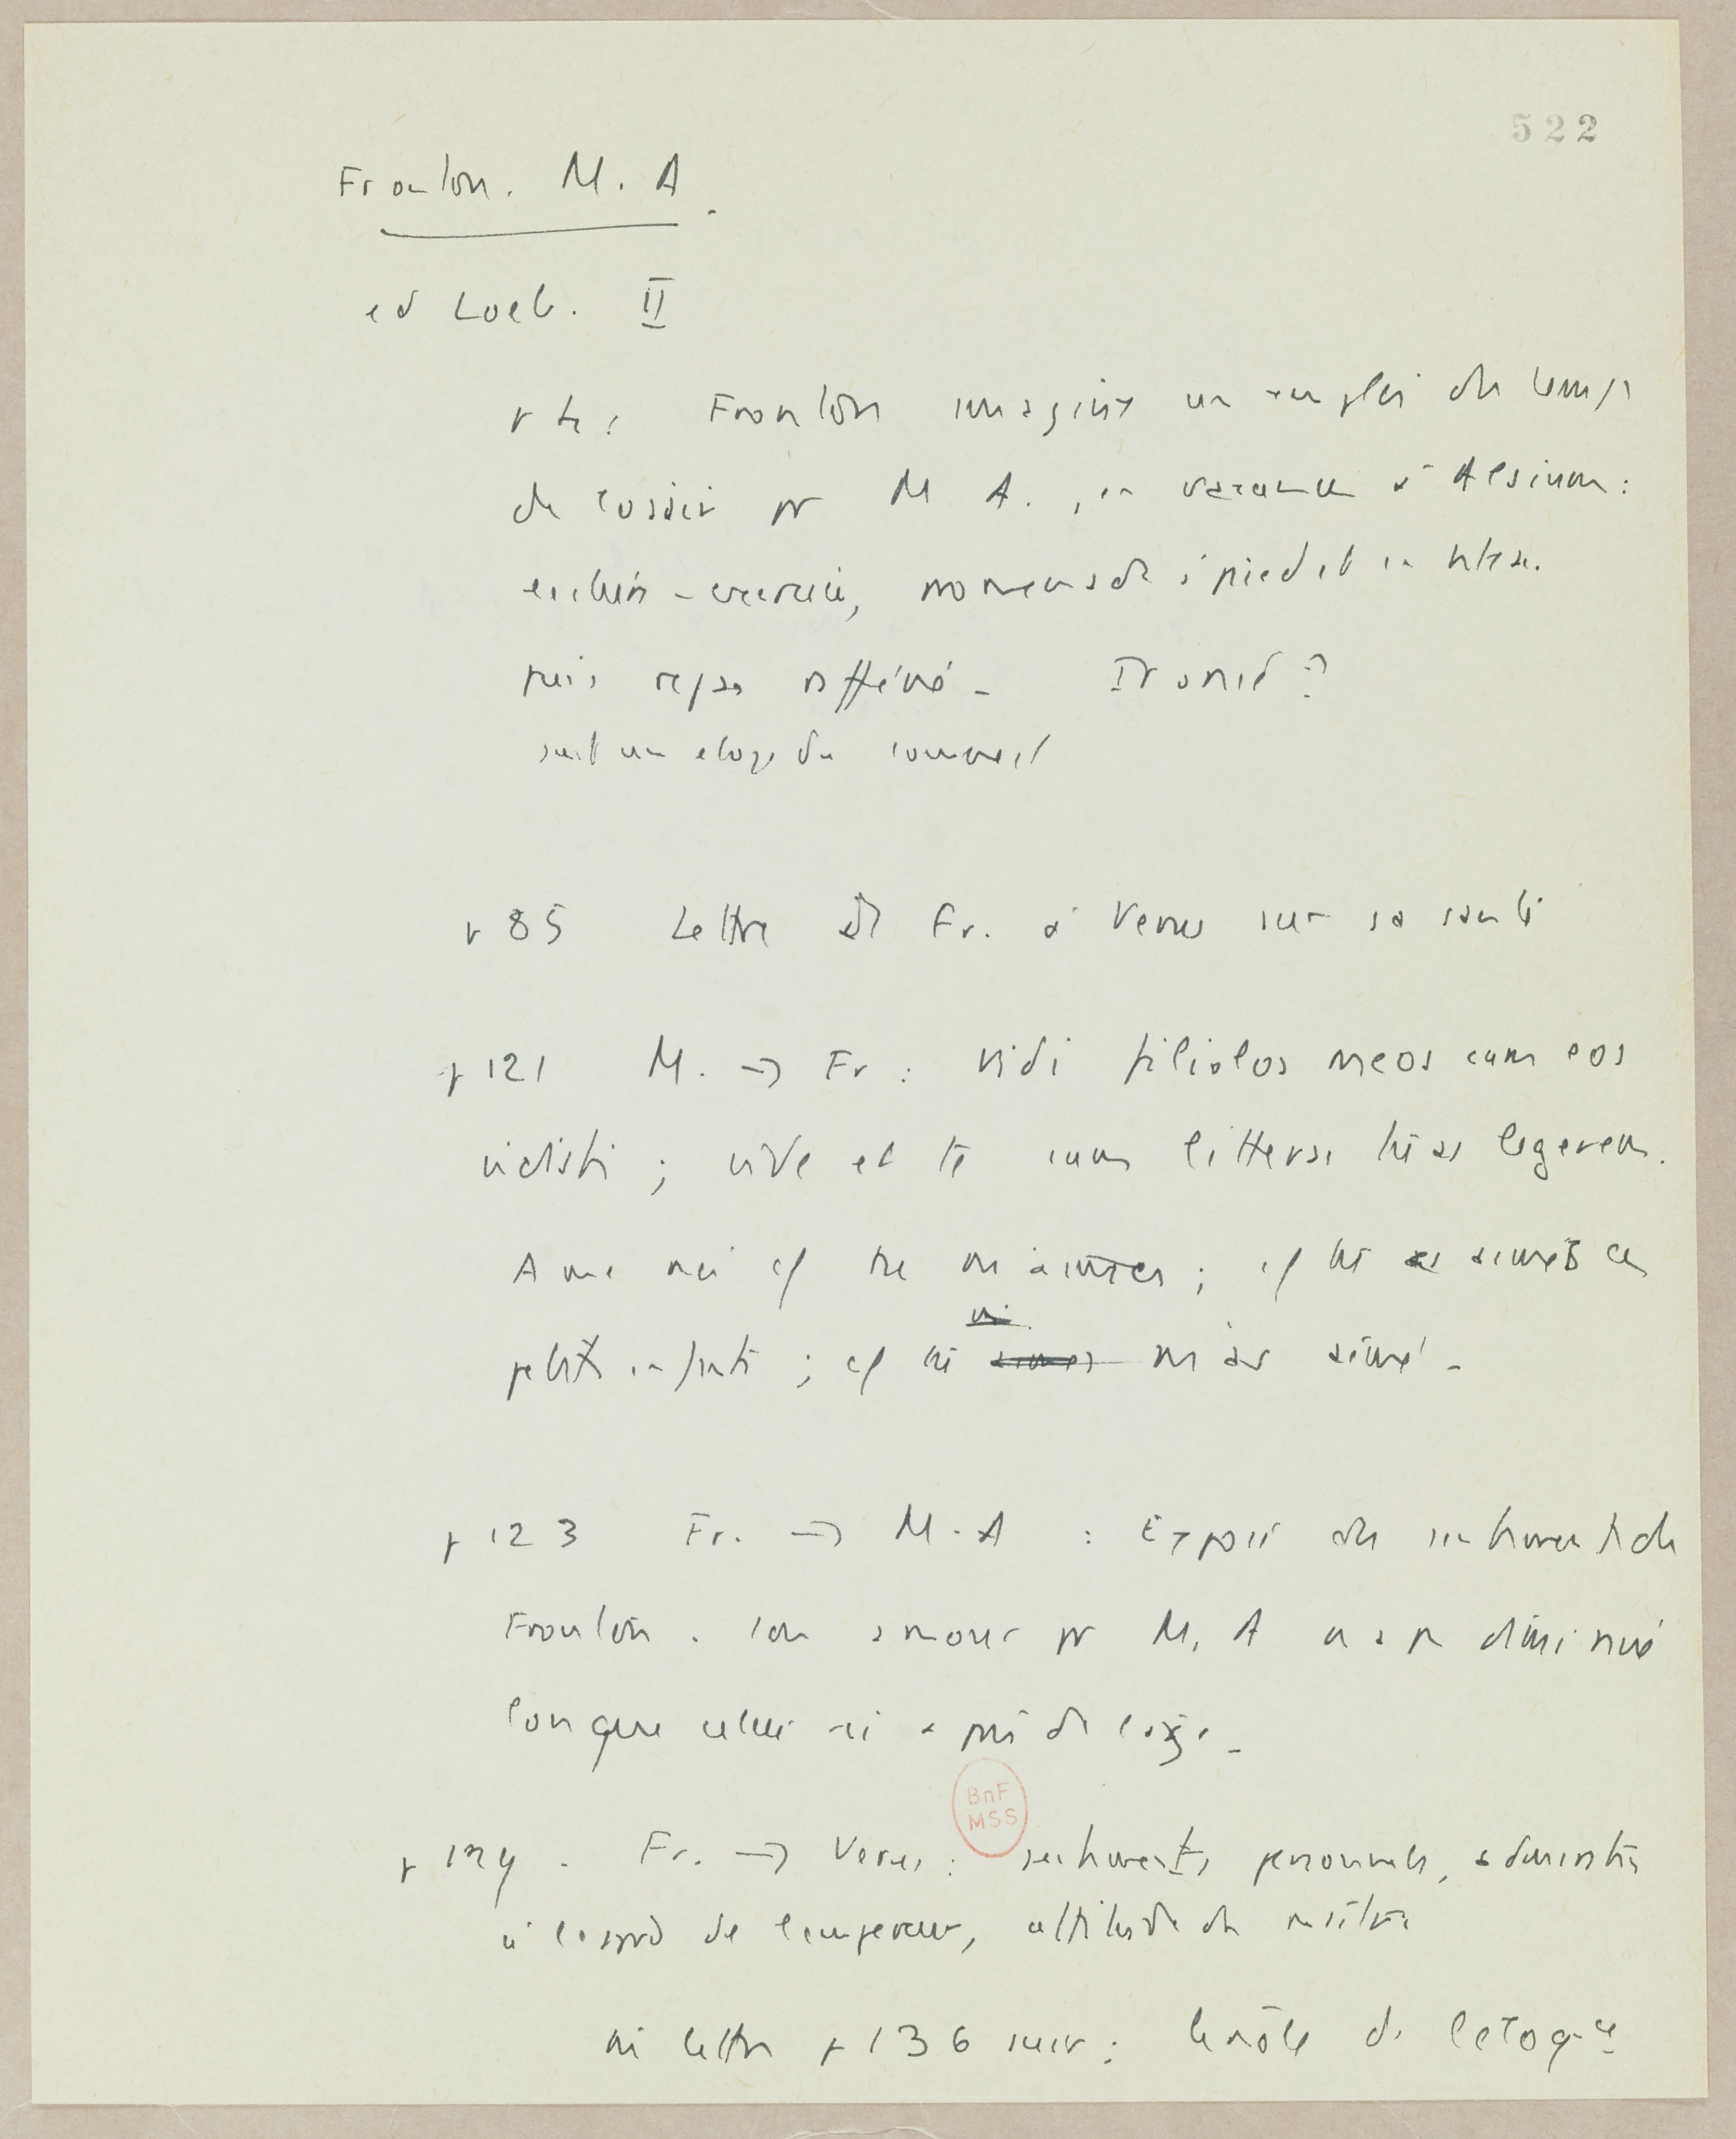 522
Fronton. M. A.
ed Loeb. II
p 4 : Fronton imagine un emploi du temps
de loisir pr M A. , en vacance à Alsium :
lecture - exercice, promenade à pied et en bateau.
puis repas raffiné - Ironie ?
suit un eloge du sommeil
p 85 Lettre de Fr. à Verus sur sa santé
p 121 M. -> Fr : vidi filiolos meos cum eos
vidisti ; vidi et te cum litteras tuas legerem.
Aime moi cf tu m'aimes ; cf tu as aimes ces
petits enfants ; cf tu m'as aimé -
p 123 Fr. -> M. A : Exposé des sentiments de
Fronton . son amour pr M. A n a pas diminué
lorsque celui ci a pris de l'âge -
p 129 . Fr. -> Verus : sentiments personnels,
à l'égard de l'empereur, attitude de maître
lettre p 136 suiv : le rôle de l'eloq-ce
BnF
MSS